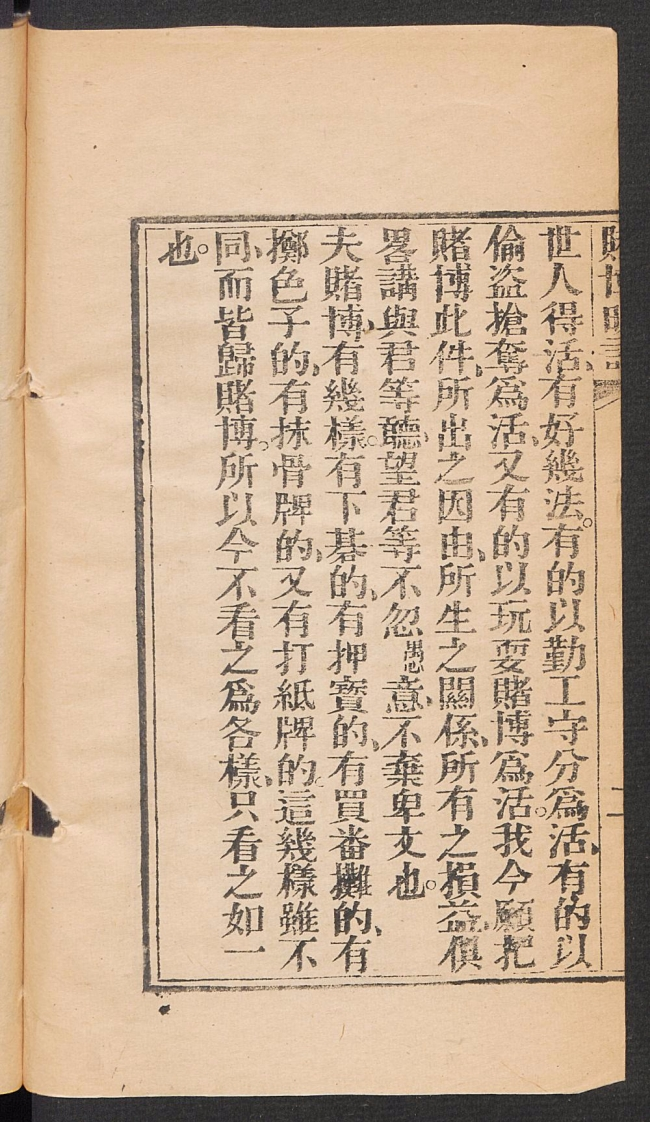 賭博明言 二
世人得活、有好幾法。有的以勤工守分爲活、有的以
偷盗搶奪爲活、又有的以玩耍賭博爲活。我今願把
賭博此件、所出之因由、所生之關係、所有之損益、俱
畧講與君等聽、望君等不忽愚意、不棄卑文也。
夫賭博、有幾樣。有下碁的、有押寶的、有買番攤的、有
擲色子的、有抹骨牌的、又有打紙牌的、這幾樣雖不
同、而皆歸賭博。所以今不看之爲各樣、只看之如一
也。